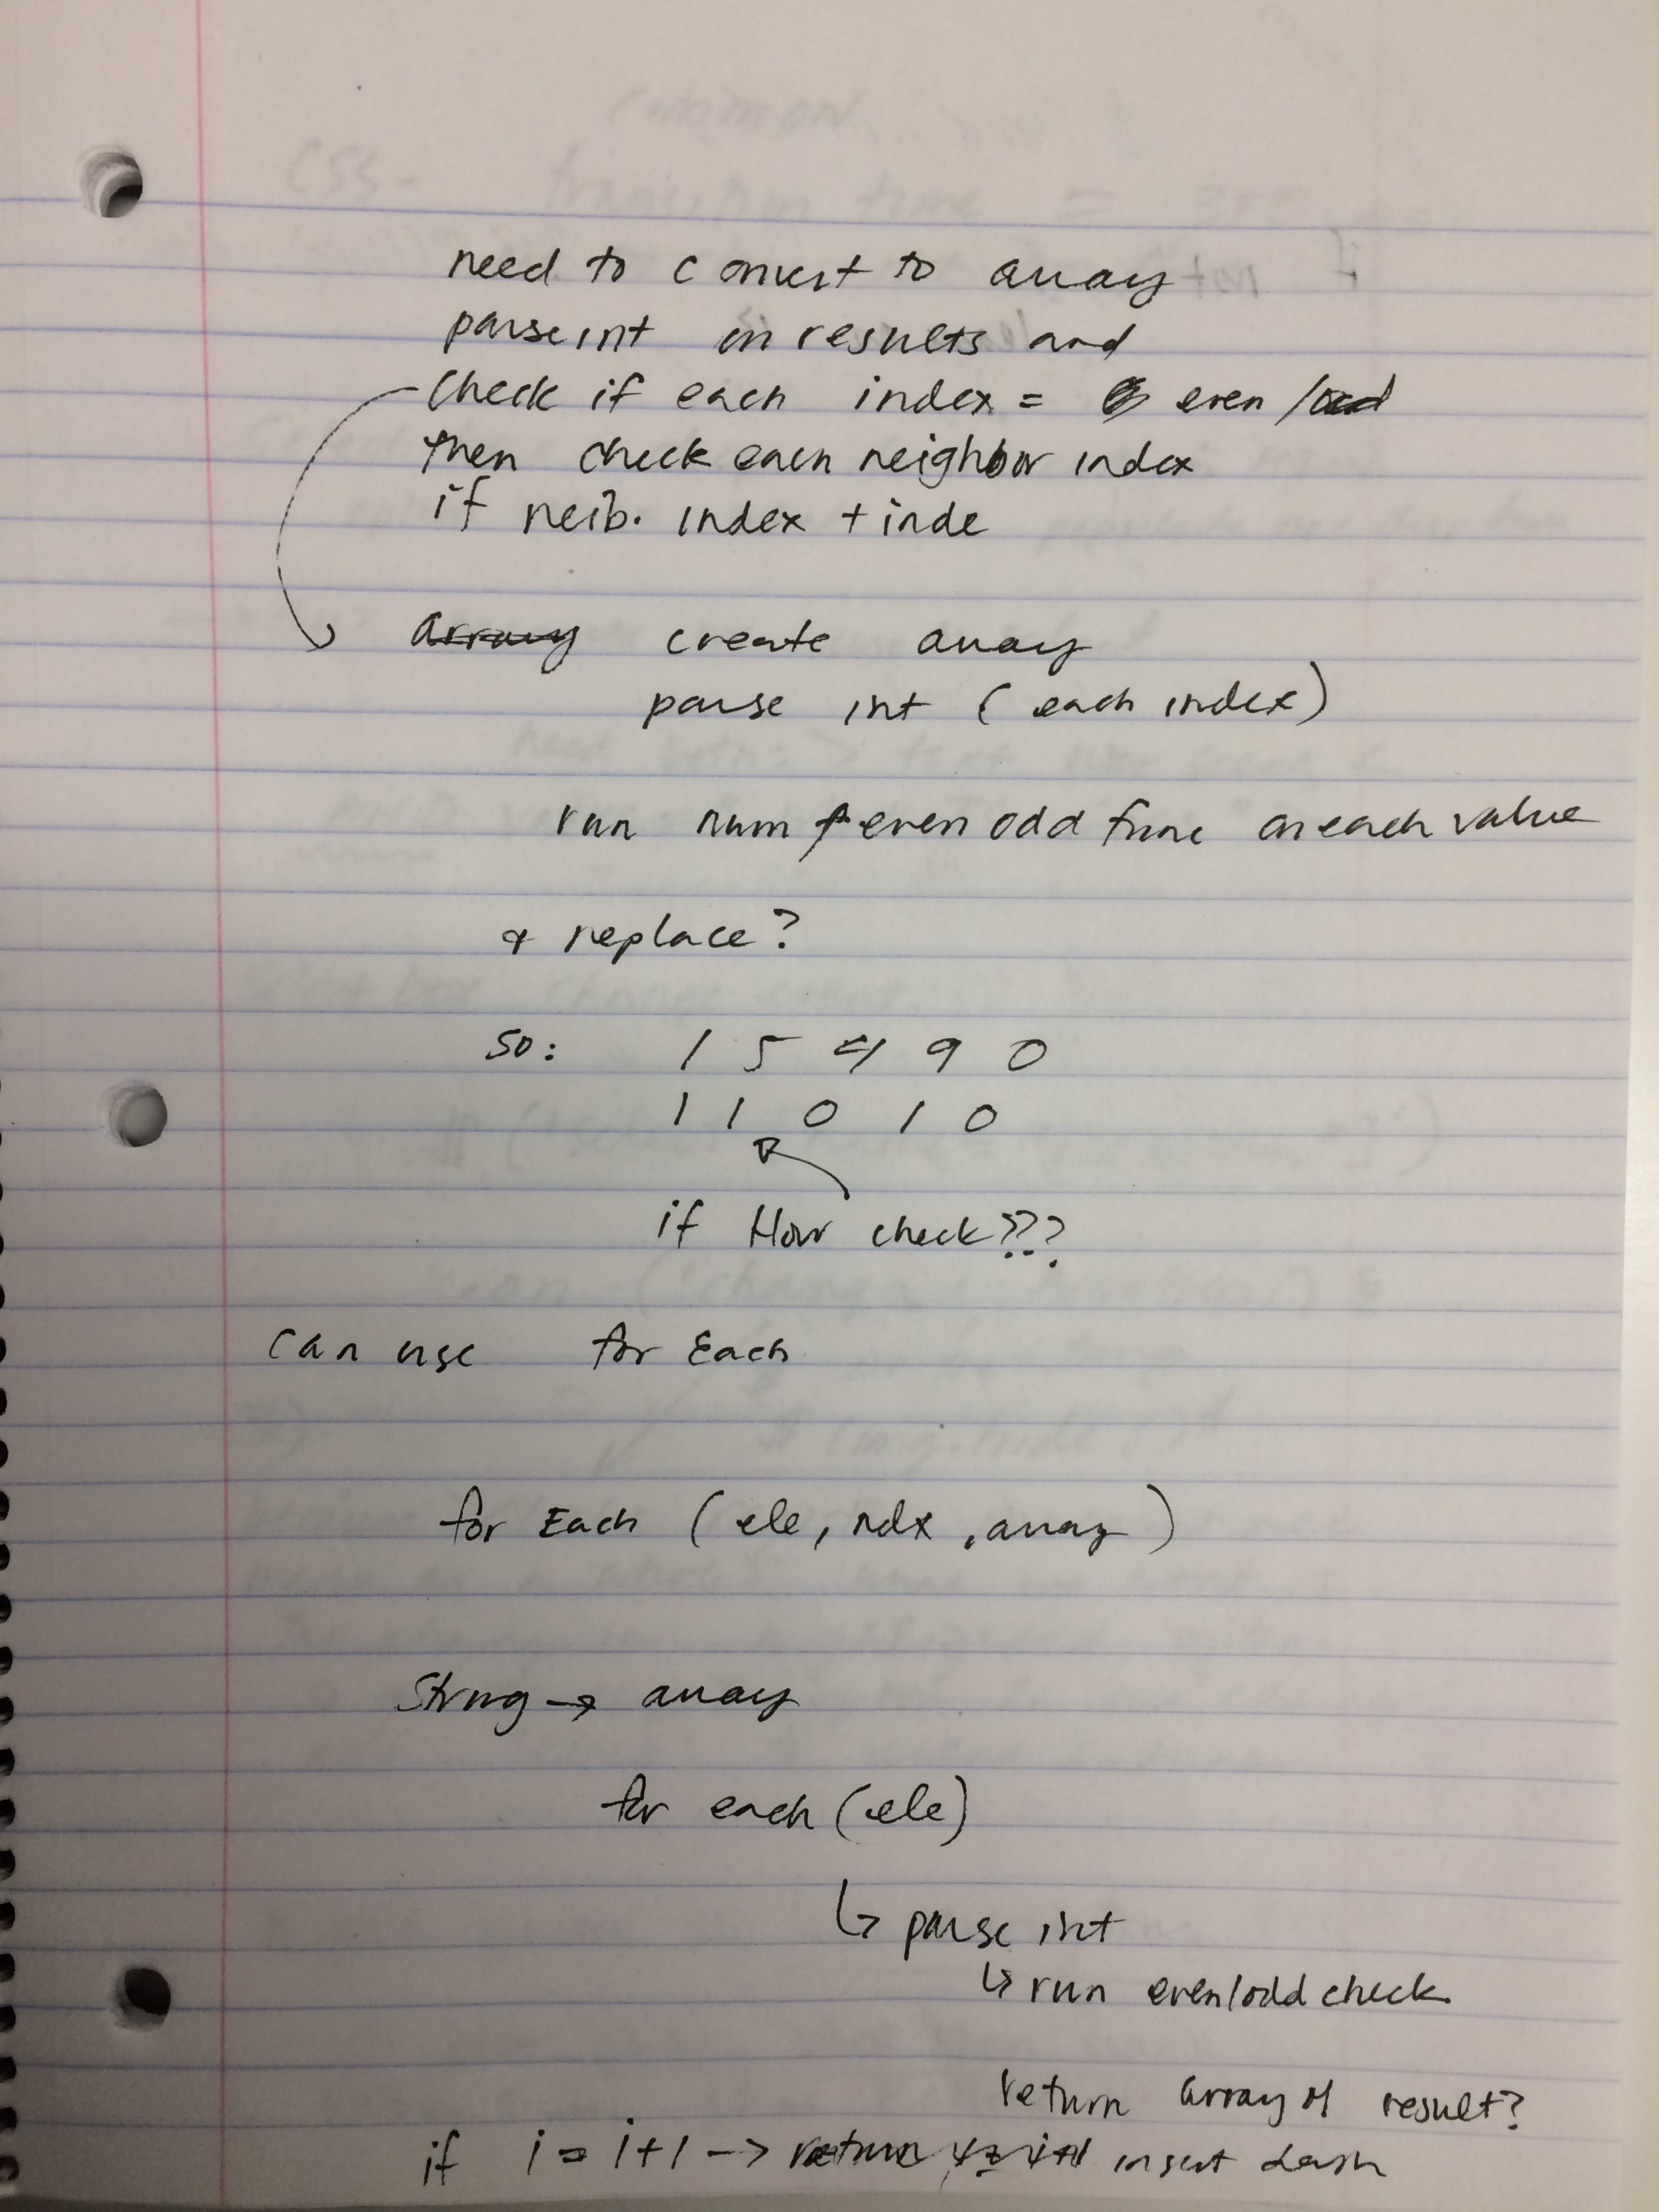 need to convert to array
parse int on results and
check if each index = even /
then check each neighbor index
if neib. index + inde
array create array
parse int ( each index )
run num even odd func on each value
& replace?
so: 1 5 4 9 0
1 1 0 1 0
if How check???
can use for Each
for Each ( ele, ndx, array )
String → array
for each (ele)
↳ parse int
↳ run even/odd check
return array of result?
if i = i+1 -> return i = i+1 insert dash